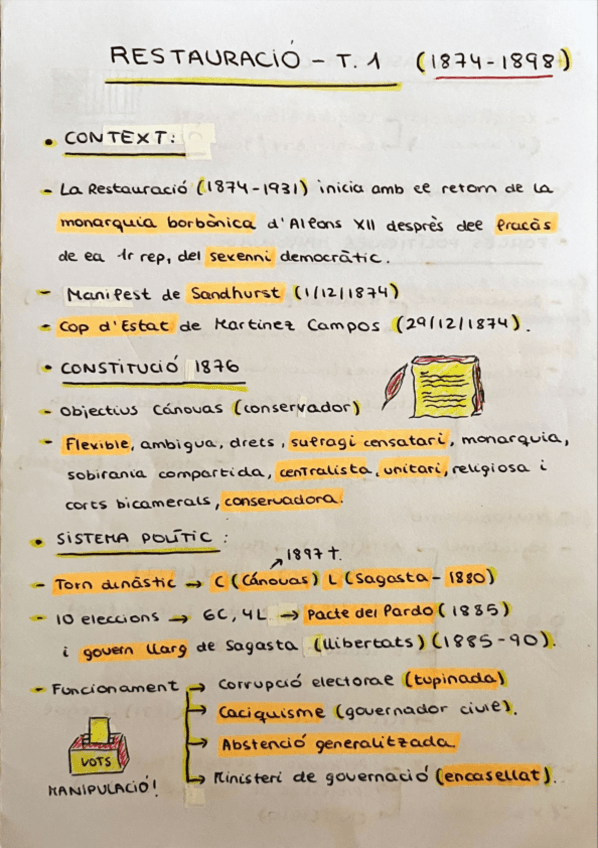 RESTAURACIÓ - T. 1 (1874-1898)
• CONTEXT:
- La Restauració (1874-1931) inicia amb el retorn de la
monarquia borbònica d'Alfons XII desprès del fracàs
de la 1r rep, del sexenni democràtic.
- Manifest de Sandhurst (1/12/1874)
- Cop d'Estat de Martinez Campos (29/12/1874).
• CONSTITUCIÓ 1876
- Objectius Cánovas (conservador)
- Flexible, ambigua, drets, sufragi censatari, monarquia,
sobirania compartida, centralista, unitari, religiosa i
corts bicamerals, conservadora.
• SISTEMA POLÍTIC:
1897 †.
- Torn dinàstic → C (Cánovas) L (Sagasta - 1880)
- 10 eleccions → 6C, 4L → Pacte del Pardo (1885)
i govern llarg de Sagasta (llibertats) (1885-90).
- Funcionament → Corrupció electoral (tupinada)
→ Caciquisme (governador civil).
→ Abstenció generalitzada.
→ Ministeri de governació (encasellat).
VOTS
MANIPULACIÓ!